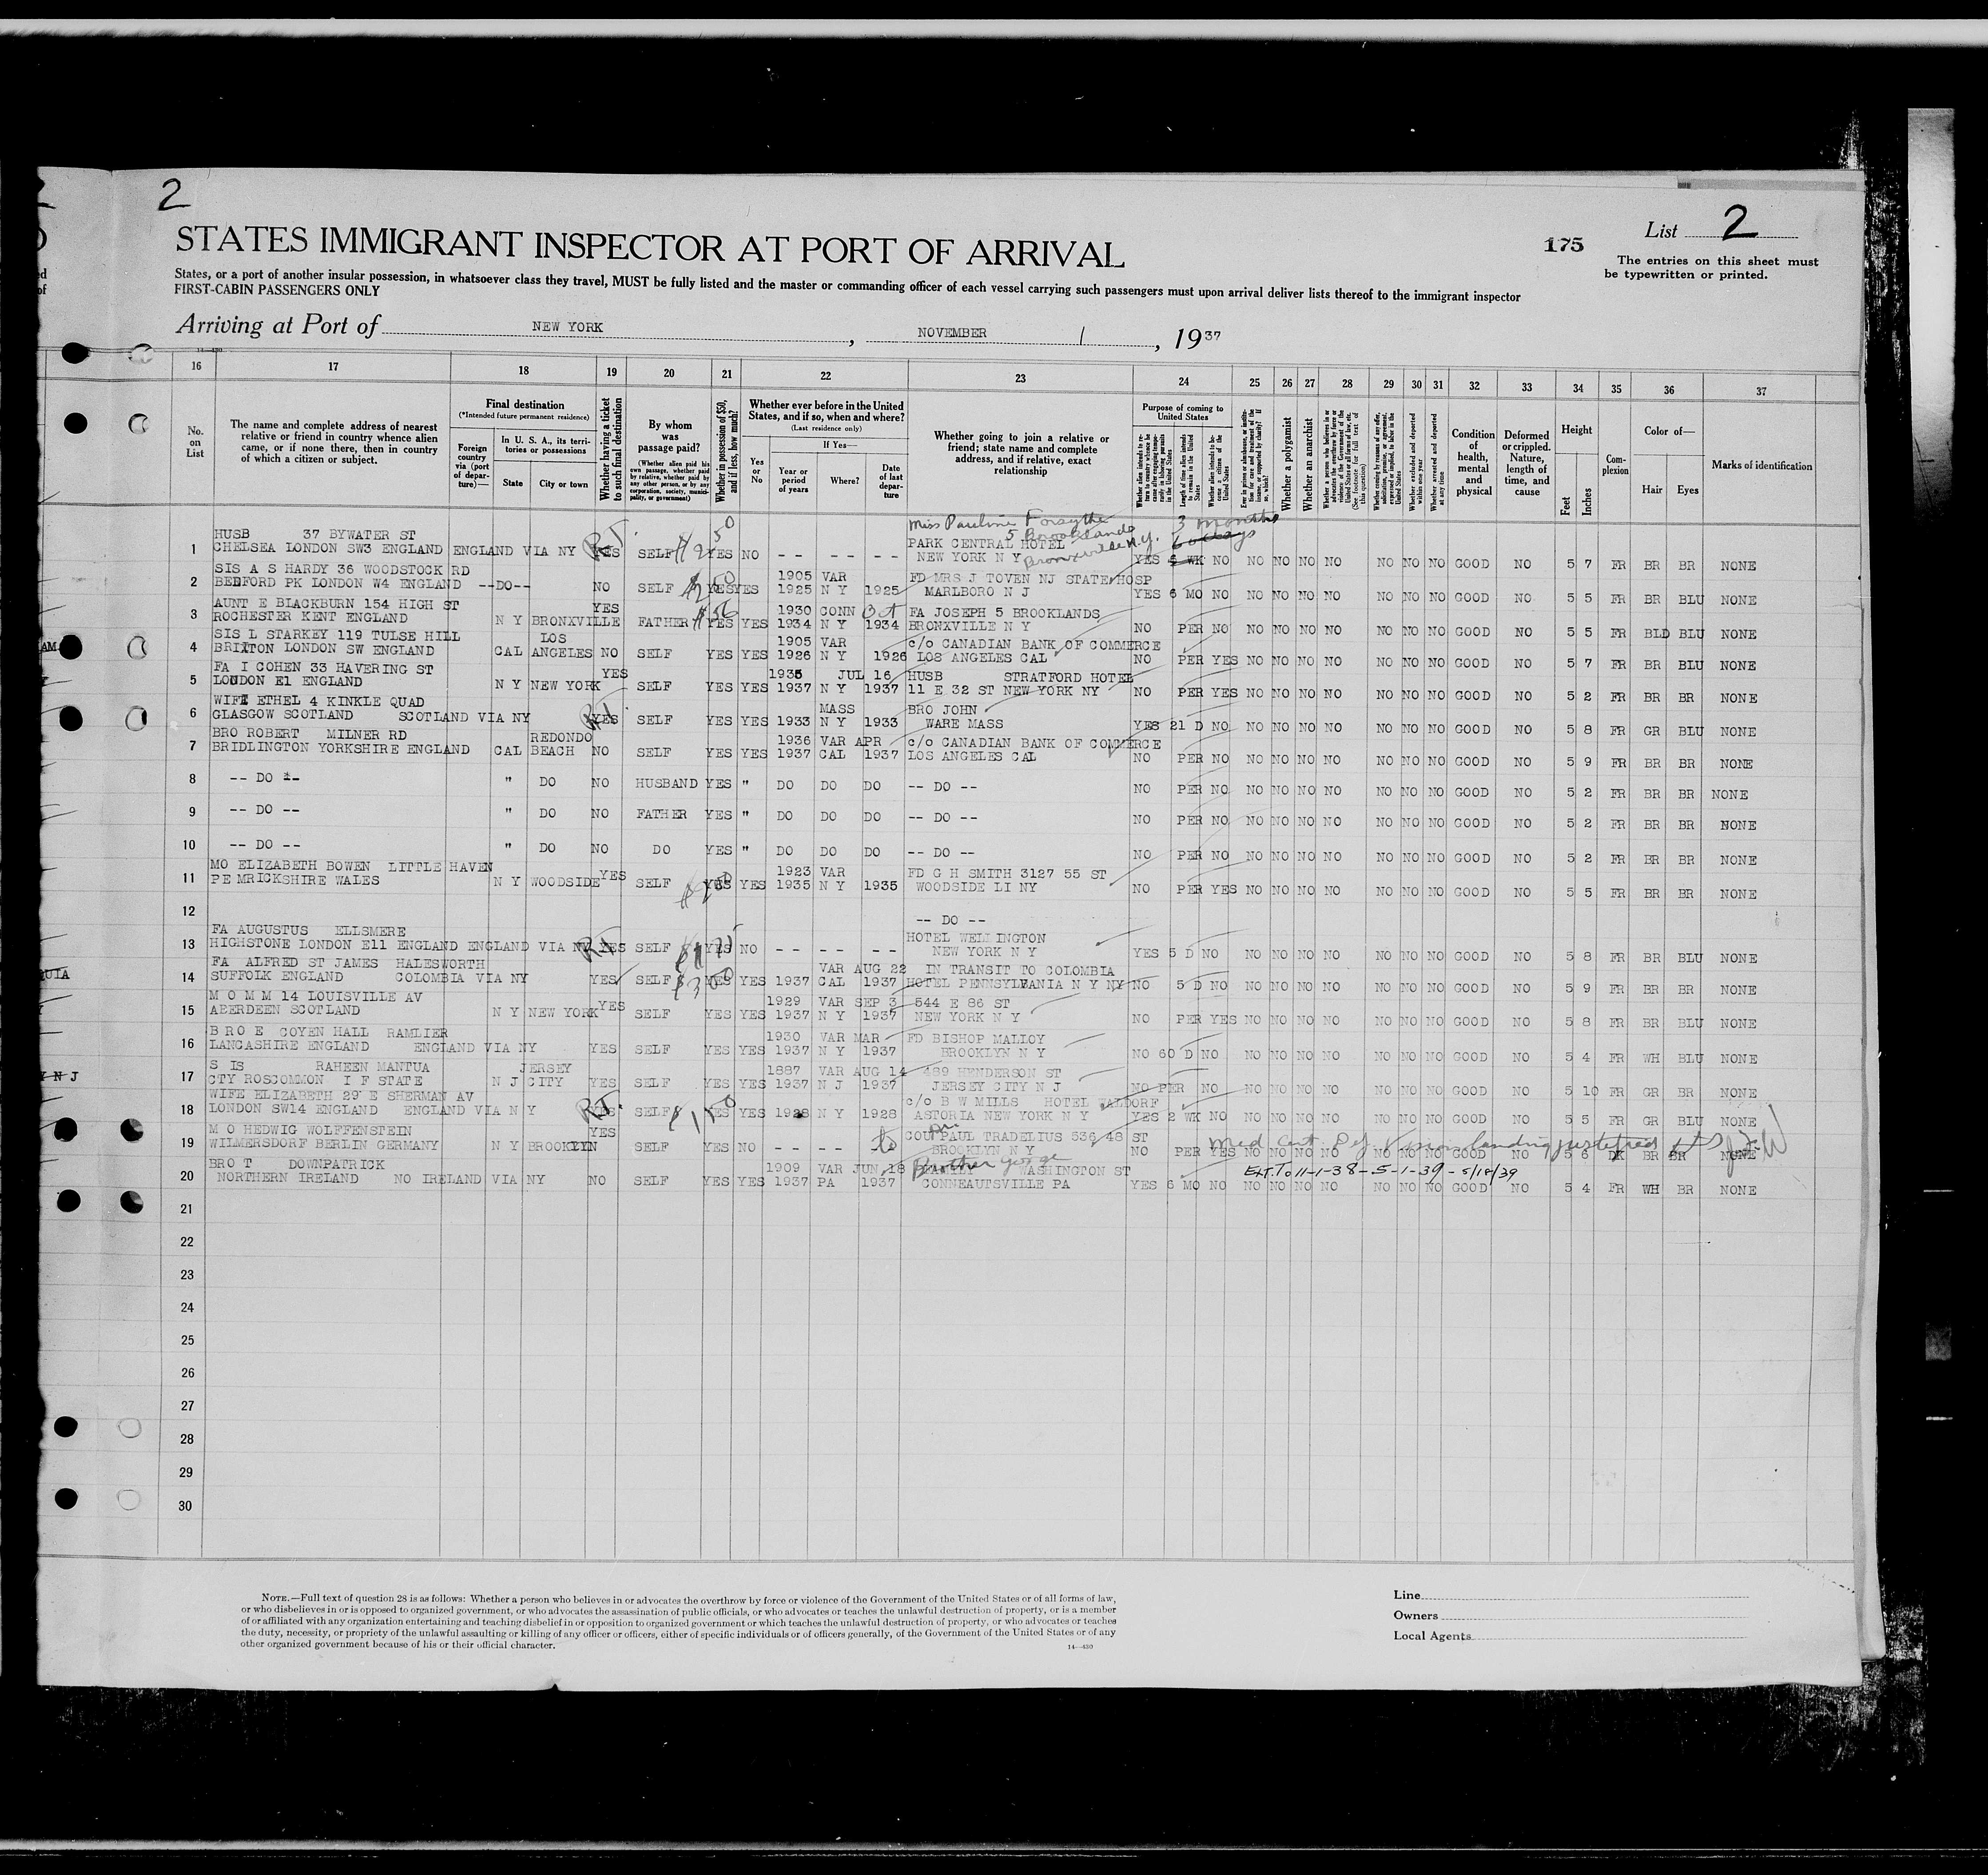 2
STATES IMMIGRANT INSPECTOR AT PORT OF ARRIVAL
175
List 2
The entries on this sheet must
be typewritten or printed.
States, or a port of another insular possession, in whatsoever class they travel, MUST be fully listed and the master or commanding officer of each vessel carrying such passengers must upon arrival deliver lists thereof to the immigrant inspector
FIRST-CABIN PASSENGERS ONLY
Arriving at Port of NEW YORK , NOVEMBER 1 , 1937
14-430
16 17 18 19 20 21 22 23 24 25 26 27 28 29 30 31 32 33 34 35 36 37
No. on List
The name and complete address of nearest relative or friend in country whence alien came, or if none there, then in country of which a citizen or subject.
Final destination
(*Intended future permanent residence)
Foreign country via (port of departure)—
In U. S. A., its territories or possessions
State
City or town
Whether having a ticket to such final destination
By whom was passage paid?
(Whether alien paid his own passage, whether paid by relative, whether paid by any other person, or by any corporation, society, municipality, or government)
Whether in possession of $50, and if less, how much?
Whether ever before in the United States, and if so, when and where?
(Last residence only)
Yes or No
If Yes—
Year or period of years
Where?
Date of last departure
Whether going to join a relative or friend; state name and complete address, and if relative, exact relationship
Purpose of coming to United States
Length of time alien intends to remain in the United States
Whether alien intends to become a citizen of the United States
Whether a polygamist
Whether an anarchist
Whether arrested and deported at any time
Condition of health, mental and physical
Deformed or crippled. Nature, length of time, and cause
Height
Feet
Inches
Complexion
Color of—
Hair
Eyes
Marks of identification
Miss Pauline Forsythe 3 months
5 Brooklands
Bronxville N.Y.
HUSB 37 BYWATER ST PARK CENTRAL HOTEL
1 CHELSEA LONDON SW3 ENGLAND ENGLAND VIA NY YES SELF YES NO - - - - - - NEW YORK N Y YES WK NO NO NO NO NO NO NO NO GOOD NO 5 7 FR BR BR NONE
SIS A S HARDY 36 WOODSTOCK RD 1905 VAR FD MRS J TOVEN NJ STATE HOSP
2 BEDFORD PK LONDON W4 ENGLAND --DO-- NO SELF YES YES 1925 N Y 1925 MARLBORO N J YES 6 MO NO NO NO NO NO NO NO NO GOOD NO 5 5 FR BR BLU NONE
AUNT E BLACKBURN 154 HIGH ST YES 1930 CONN Oct FA JOSEPH 5 BROOKLANDS
3 ROCHESTER KENT ENGLAND N Y BRONXVILLE FATHER YES YES 1934 N Y 1934 BRONXVILLE N Y NO PER NO NO NO NO NO NO NO NO GOOD NO 5 5 FR BLD BLU NONE
SIS L STARKEY 119 TULSE HILL LOS 1905 VAR c/o CANADIAN BANK OF COMMERCE
4 BRIXTON LONDON SW ENGLAND CAL ANGELES NO SELF YES YES 1926 N Y 1926 LOS ANGELES CAL NO PER YES NO NO NO NO NO NO NO GOOD NO 5 7 FR BR BLU NONE
FA I COHEN 33 HAVERING ST YES 1935 JUL 16 HUSB STRATFORD HOTEL
5 LONDON E1 ENGLAND N Y NEW YORK SELF YES YES 1937 N Y 1937 11 E 32 ST NEW YORK NY NO PER YES NO NO NO NO NO NO NO GOOD NO 5 2 FR BR BR NONE
WIFE ETHEL 4 KINKLE QUAD MASS BRO JOHN
6 GLASGOW SCOTLAND SCOTLAND VIA NY YES SELF YES YES 1933 N Y 1933 WARE MASS YES 21 D NO NO NO NO NO NO NO NO GOOD NO 5 8 FR GR BLU NONE
BRO ROBERT MILNER RD REDONDO 1936 VAR APR c/o CANADIAN BANK OF COMMERCE
7 BRIDLINGTON YORKSHIRE ENGLAND CAL BEACH NO SELF YES YES 1937 CAL 1937 LOS ANGELES CAL NO PER NO NO NO NO NO NO NO NO GOOD NO 5 9 FR BR BR NONE
8 -- DO -- " DO NO HUSBAND YES " DO DO DO -- DO -- NO PER NO NO NO NO NO NO NO NO GOOD NO 5 2 FR BR BR NONE
9 -- DO -- " DO NO FATHER YES " DO DO DO -- DO -- NO PER NO NO NO NO NO NO NO NO GOOD NO 5 2 FR BR BR NONE
10 -- DO -- " DO NO DO YES " DO DO DO -- DO -- NO PER NO NO NO NO NO NO NO NO GOOD NO 5 2 FR BR BR NONE
MO ELIZABETH BOWEN LITTLE HAVEN YES 1923 VAR FD G H SMITH 3127 55 ST
11 PEMRICKSHIRE WALES N Y WOODSIDE SELF YES YES 1935 N Y 1935 WOODSIDE LI NY NO PER YES NO NO NO NO NO NO NO GOOD NO 5 5 FR BR BR NONE
12 -- DO --
FA AUGUSTUS ELLSMERE HOTEL WELLINGTON
13 HIGHSTONE LONDON E11 ENGLAND ENGLAND VIA NY YES SELF YES NO - - - - - - NEW YORK N Y YES 5 D NO NO NO NO NO NO NO NO GOOD NO 5 8 FR BR BLU NONE
FA ALFRED ST JAMES HALESWORTH VAR AUG 22 IN TRANSIT TO COLOMBIA
14 SUFFOLK ENGLAND COLOMBIA VIA NY YES SELF YES YES 1937 CAL 1937 HOTEL PENNSYLVANIA N Y NY NO 5 D NO NO NO NO NO NO NO NO GOOD NO 5 9 FR BR BR NONE
M O M M 14 LOUISVILLE AV YES 1929 VAR SEP 3 544 E 86 ST
15 ABERDEEN SCOTLAND N Y NEW YORK SELF YES YES 1937 N Y 1937 NEW YORK N Y NO PER YES NO NO NO NO NO NO NO GOOD NO 5 8 FR BR BLU NONE
B R O E COYEN HALL RAMLIER 1930 VAR MAR FD BISHOP MALLOY
16 LANCASHIRE ENGLAND ENGLAND VIA NY YES SELF YES YES 1937 N Y 1937 BROOKLYN N Y NO 60 D NO NO NO NO NO NO NO NO GOOD NO 5 4 FR WH BLU NONE
S IS RAHEEN MANTUA JERSEY 1887 VAR AUG 14 489 HENDERSON ST
17 CTY ROSCOMMON I F STATE N J CITY YES SELF YES YES 1937 N J 1937 JERSEY CITY N J NO PER NO NO NO NO NO NO NO NO GOOD NO 5 10 FR GR BR NONE
WIFE ELIZABETH 29 E SHERMAN AV c/o B W MILLS HOTEL WALDORF
18 LONDON SW14 ENGLAND ENGLAND VIA N Y YES SELF YES YES 1928 N Y 1928 ASTORIA NEW YORK N Y YES 2 WK NO NO NO NO NO NO NO NO GOOD NO 5 5 FR GR BLU NONE
M O HEDWIG WOLFFENSTEIN YES COU PAUL TRADELIUS 536 48 ST
19 WILMERSDORF BERLIN GERMANY N Y BROOKLYN SELF YES NO - - - - to BROOKLYN N Y NO PER YES NO NO NO NO NO NO NO GOOD NO 5 6 DK BR BR NONE
BRO T DOWNPATRICK 1909 VAR JUN 18 Brother George WASHINGTON ST Ext. To 11-1-38 - 5-1-39 - 5/18/39
20 NORTHERN IRELAND NO IRELAND VIA NY NO SELF YES YES 1937 PA 1937 CONNEAUTSVILLE PA YES 6 MO NO NO NO NO NO NO NO NO GOOD NO 5 4 FR WH BR NONE
21
22
23
24
25
26
27
28
29
30
NOTE.—Full text of question 28 is as follows: Whether a person who believes in or advocates the overthrow by force or violence of the Government of the United States or of all forms of law,
or who disbelieves in or is opposed to organized government, or who advocates the assassination of public officials, or who advocates or teaches the unlawful destruction of property, or is a member
of or affiliated with any organization entertaining and teaching disbelief in or opposition to organized government or which teaches the unlawful destruction of property, or who advocates or teaches
the duty, necessity, or propriety of the unlawful assaulting or killing of any officer or officers, either of specific individuals or of officers generally, of the Government of the United States or of any
other organized government because of his or their official character.
14-430
Line
Owners
Local Agents